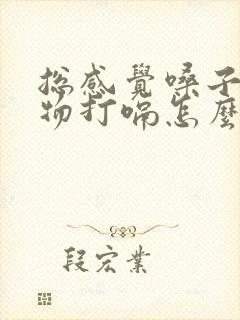 总感覺嗓子
物打嗝怎麼
段宏業